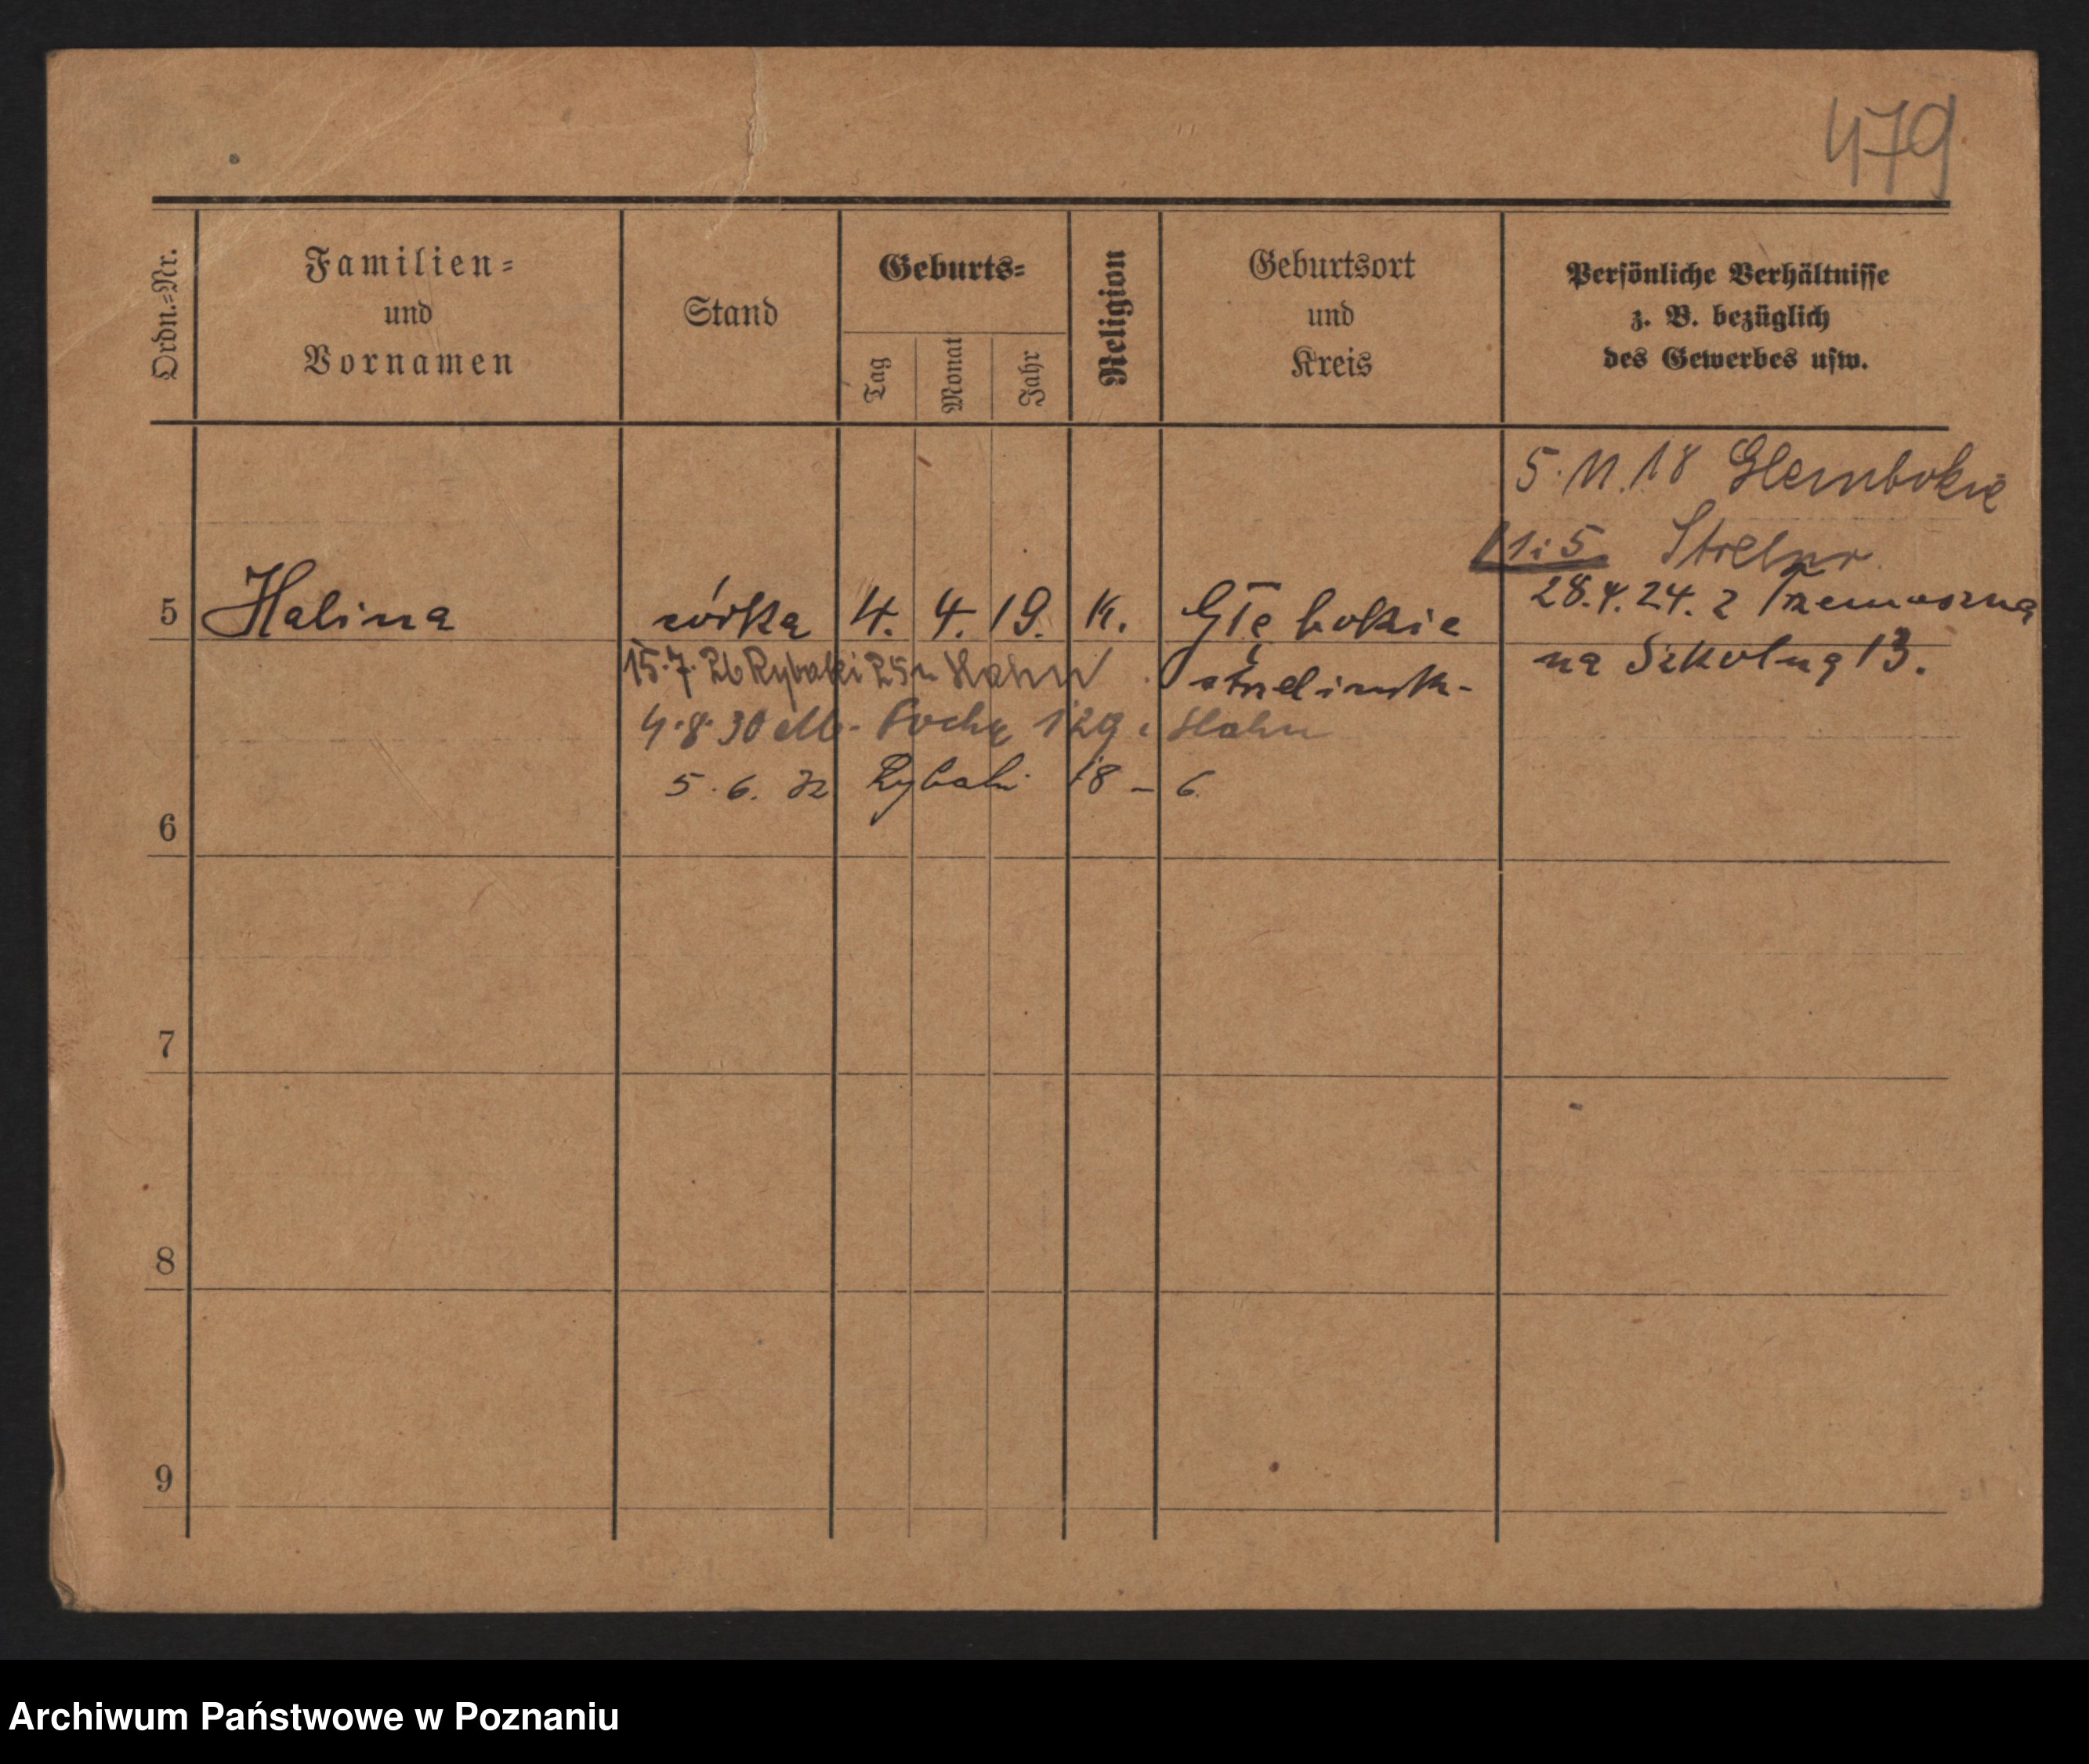 479
Ordn.=Nr.
Familien=
und
Vornamen
Stand
Geburts=
Tag
Monat
Jahr
Religion
Geburtsort
und
Kreis
Persönliche Verhältnisse
z. B. bezüglich
des Gewerbes usw.
5. 11. 18 Glembokie
1 i 5. Strelno
28.4.24. z
5 Halina córka 4. 4. 19. K. Głębokie
na Szkolną 13.
15.7.26 Rybaki 25 u Hahn
strelinsk-
4.8.30 M. Focha 129 Hahn
5.6.32 Rybaki 18 - 6
6
7
8
9
Archiwum Państwowe w Poznaniu